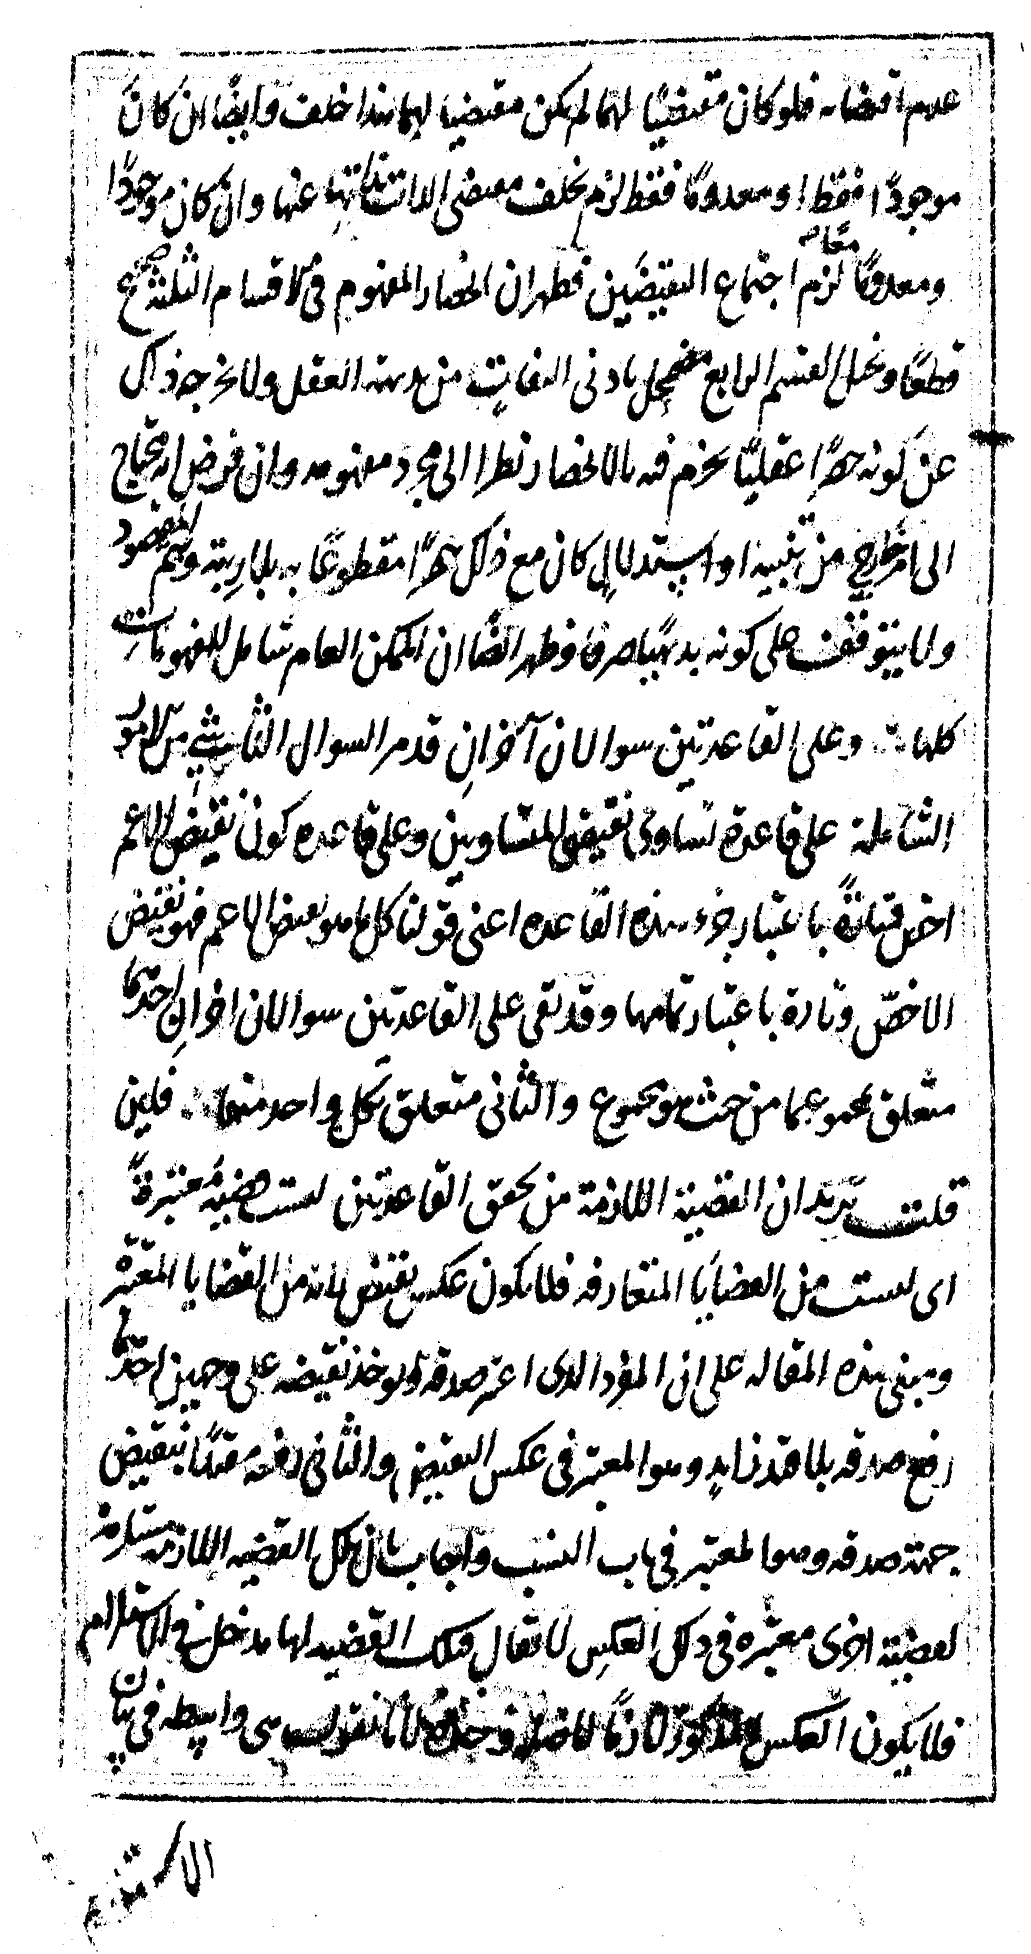 عدم اقتضائه فلو كان مقتضيًا لهما لم يكن مقتضيا لهما هذا خلف وايضًا ان كان
موجودًا فقط او معدومًا فقط لزم تخلف مقتضى الذات بذاتها عنها وان كان موجودًا
ومعدومًا معًا لزم اجتماع النقيضين فظهر ان انحصار المفهوم في الاقسام الثلثة صحيح
قطعًا وتخيل القسم الرابع مضمحل بادنى التفات من بديهة العقل ولا يخرجه ذلك
عن كونه حصرًا عقليًا يجزم فيه بالانحصار نظرا الى مجرد مفهومه وان فرض انه محتاج
الى امر خارج من تنبيه او استدلال كان مع ذلك حصرًا مقطوعًا به بلا ريبة وتم المقصود
ولا يتوقف على كونه بديهيًا صرفا وظهر ايضًا ان الممكن العام شامل للمفهومات
كلها وعلى القاعدتين سوالان آخران قد مر السوال الناشي من الامور
الشاملة على قاعدة تساوى نقيضى المتساويين وعلى قاعدة كون نقيض الاعم
اخص فتارةً باعتبار جزء هذه القاعدة اعنى قولنا كل ما هو نقيض الاعم فهو نقيض
الاخصّ وتارة باعتبار تمامها وقد بقى على القاعدتين سوالان اخران احدهما
متعلق بمجموعهما من حيث هو مجموع والثانى متعلق بكل واحد منهما فلين
قلت يريد ان القضية اللازمة من تحقق القاعدتين ليست قضيةً معتبرةً
اى ليست من القضايا المتعارفه فلا يكون عكس نقيض لانه من القضايا المعتبرة
ومبنى هذه المقاله على ان المفرد الذى اعتبر صدقه يوخذ نقيضه على وجهين احدهما
رفع صدقه بلا قيد زايد وهو المعتبر فى عكس النقيض والثانى رفعه مقيدًا بنقيض
جهة صدقه وهو المعتبر فى باب النسب واجاب بان تلك القضيه اللازمه مستلزمة
لقضية اخرى معتبره فى ذلك العكس لا يقال فتلك القضيه لها مدخل فى الاستلزام
فلا يكون العكس المذكور لازمًا لاصله لانا نقول هى واسطه فى بيان